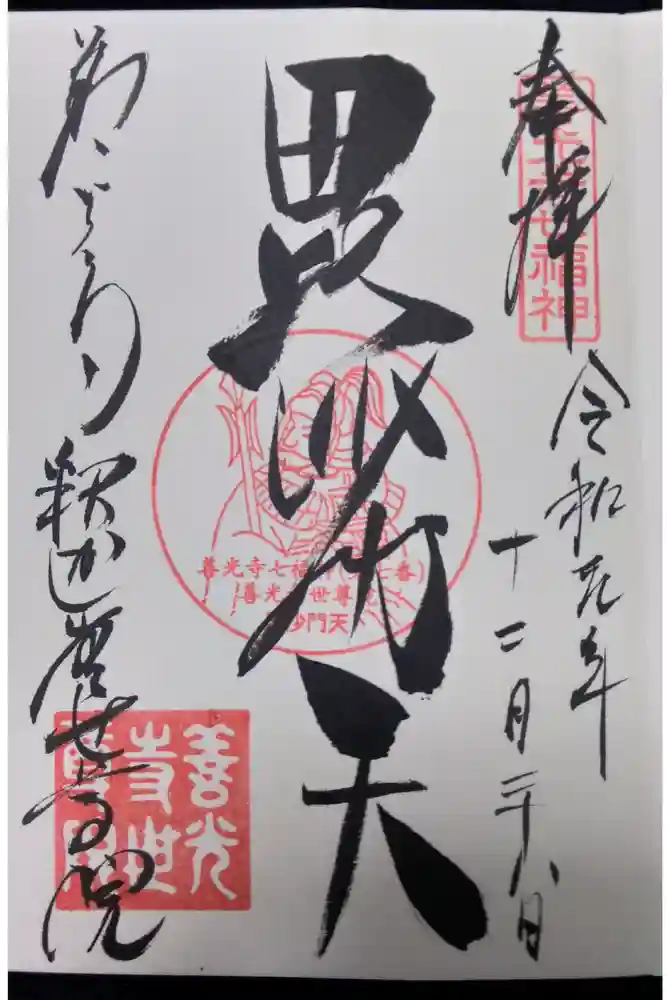 奉拝
善光寺七福神
令和元年
十二月二十八日
毘沙門天
善光寺七福神(第七番)
善光寺世尊院
毘沙門天
釈迦堂世尊院
善光
寺世
尊院